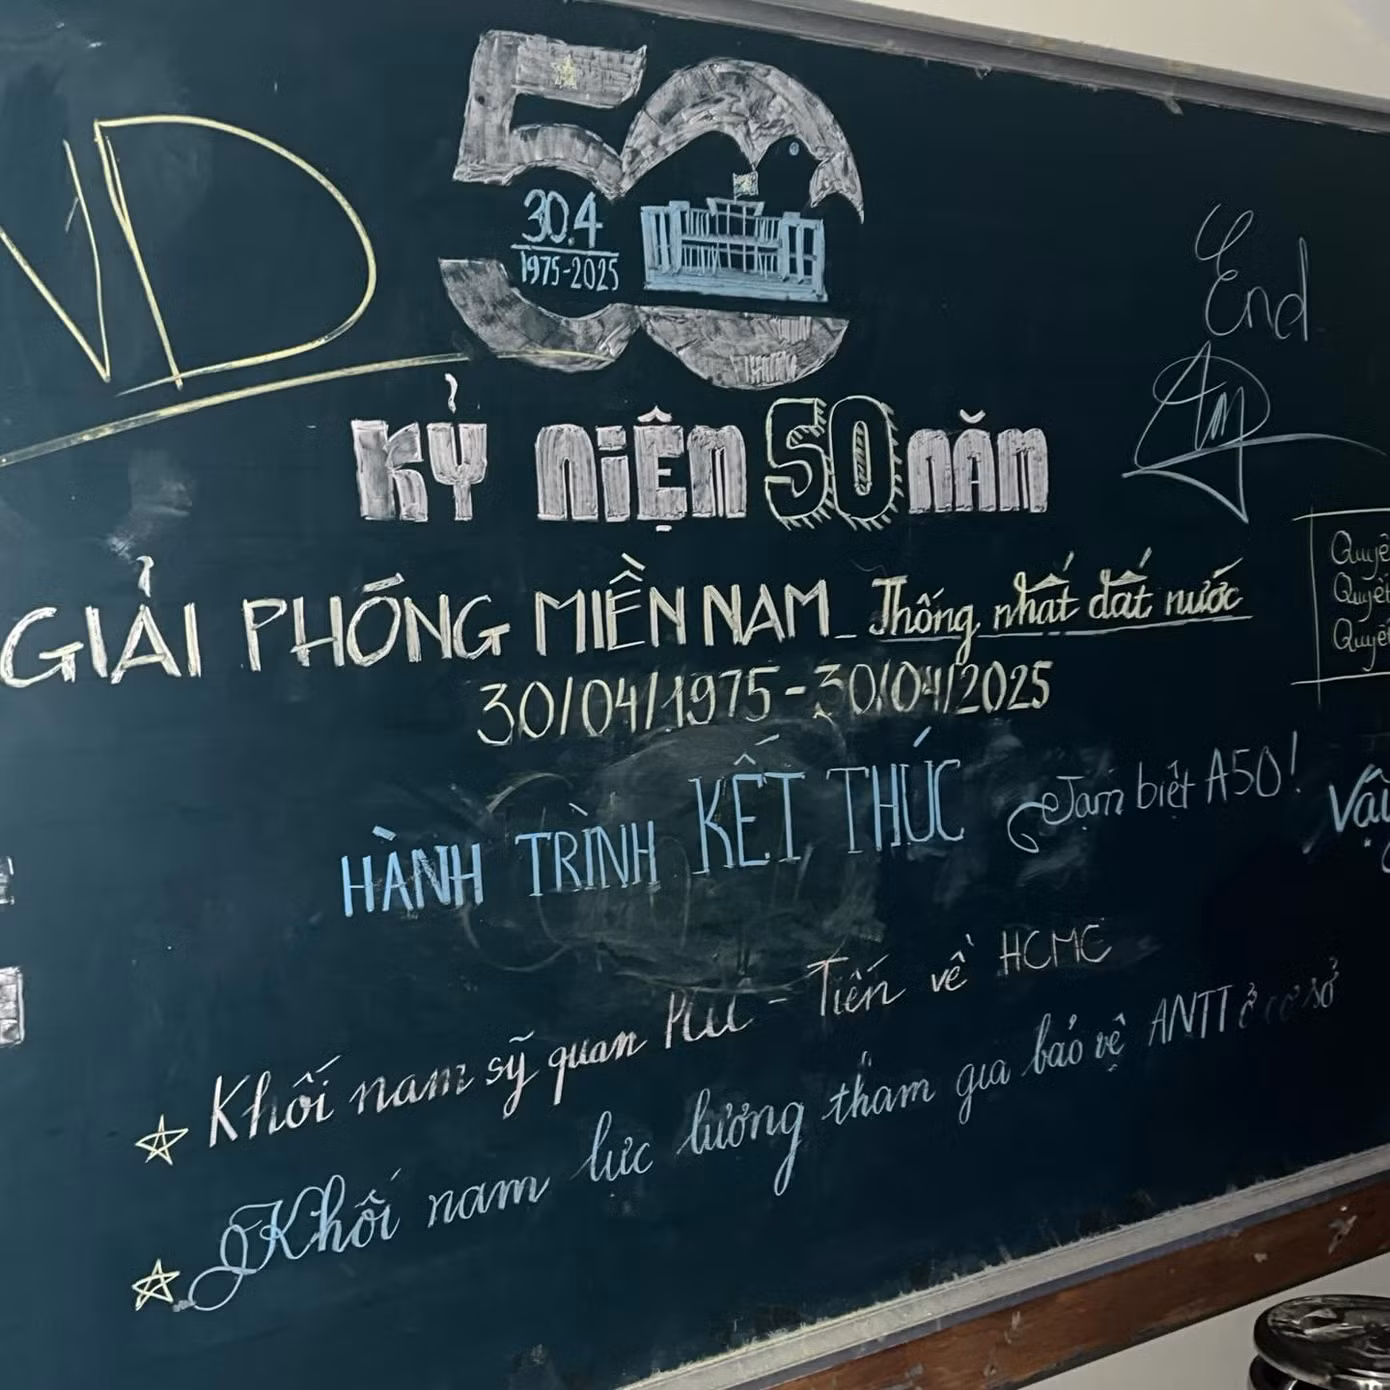 VD
50
30.4
1975-2025
End
KỶ NIỆM 50 NĂM
GIẢI PHÓNG MIỀN NAM - Thống nhất đất nước
30/04/1975 - 30/04/2025
HÀNH TRÌNH KẾT THÚC
Tạm biệt A50!
Khối nam sỹ quan - Tiến về HCMC
Khối nam lực lượng tham gia bảo vệ ANTT ở cơ sở